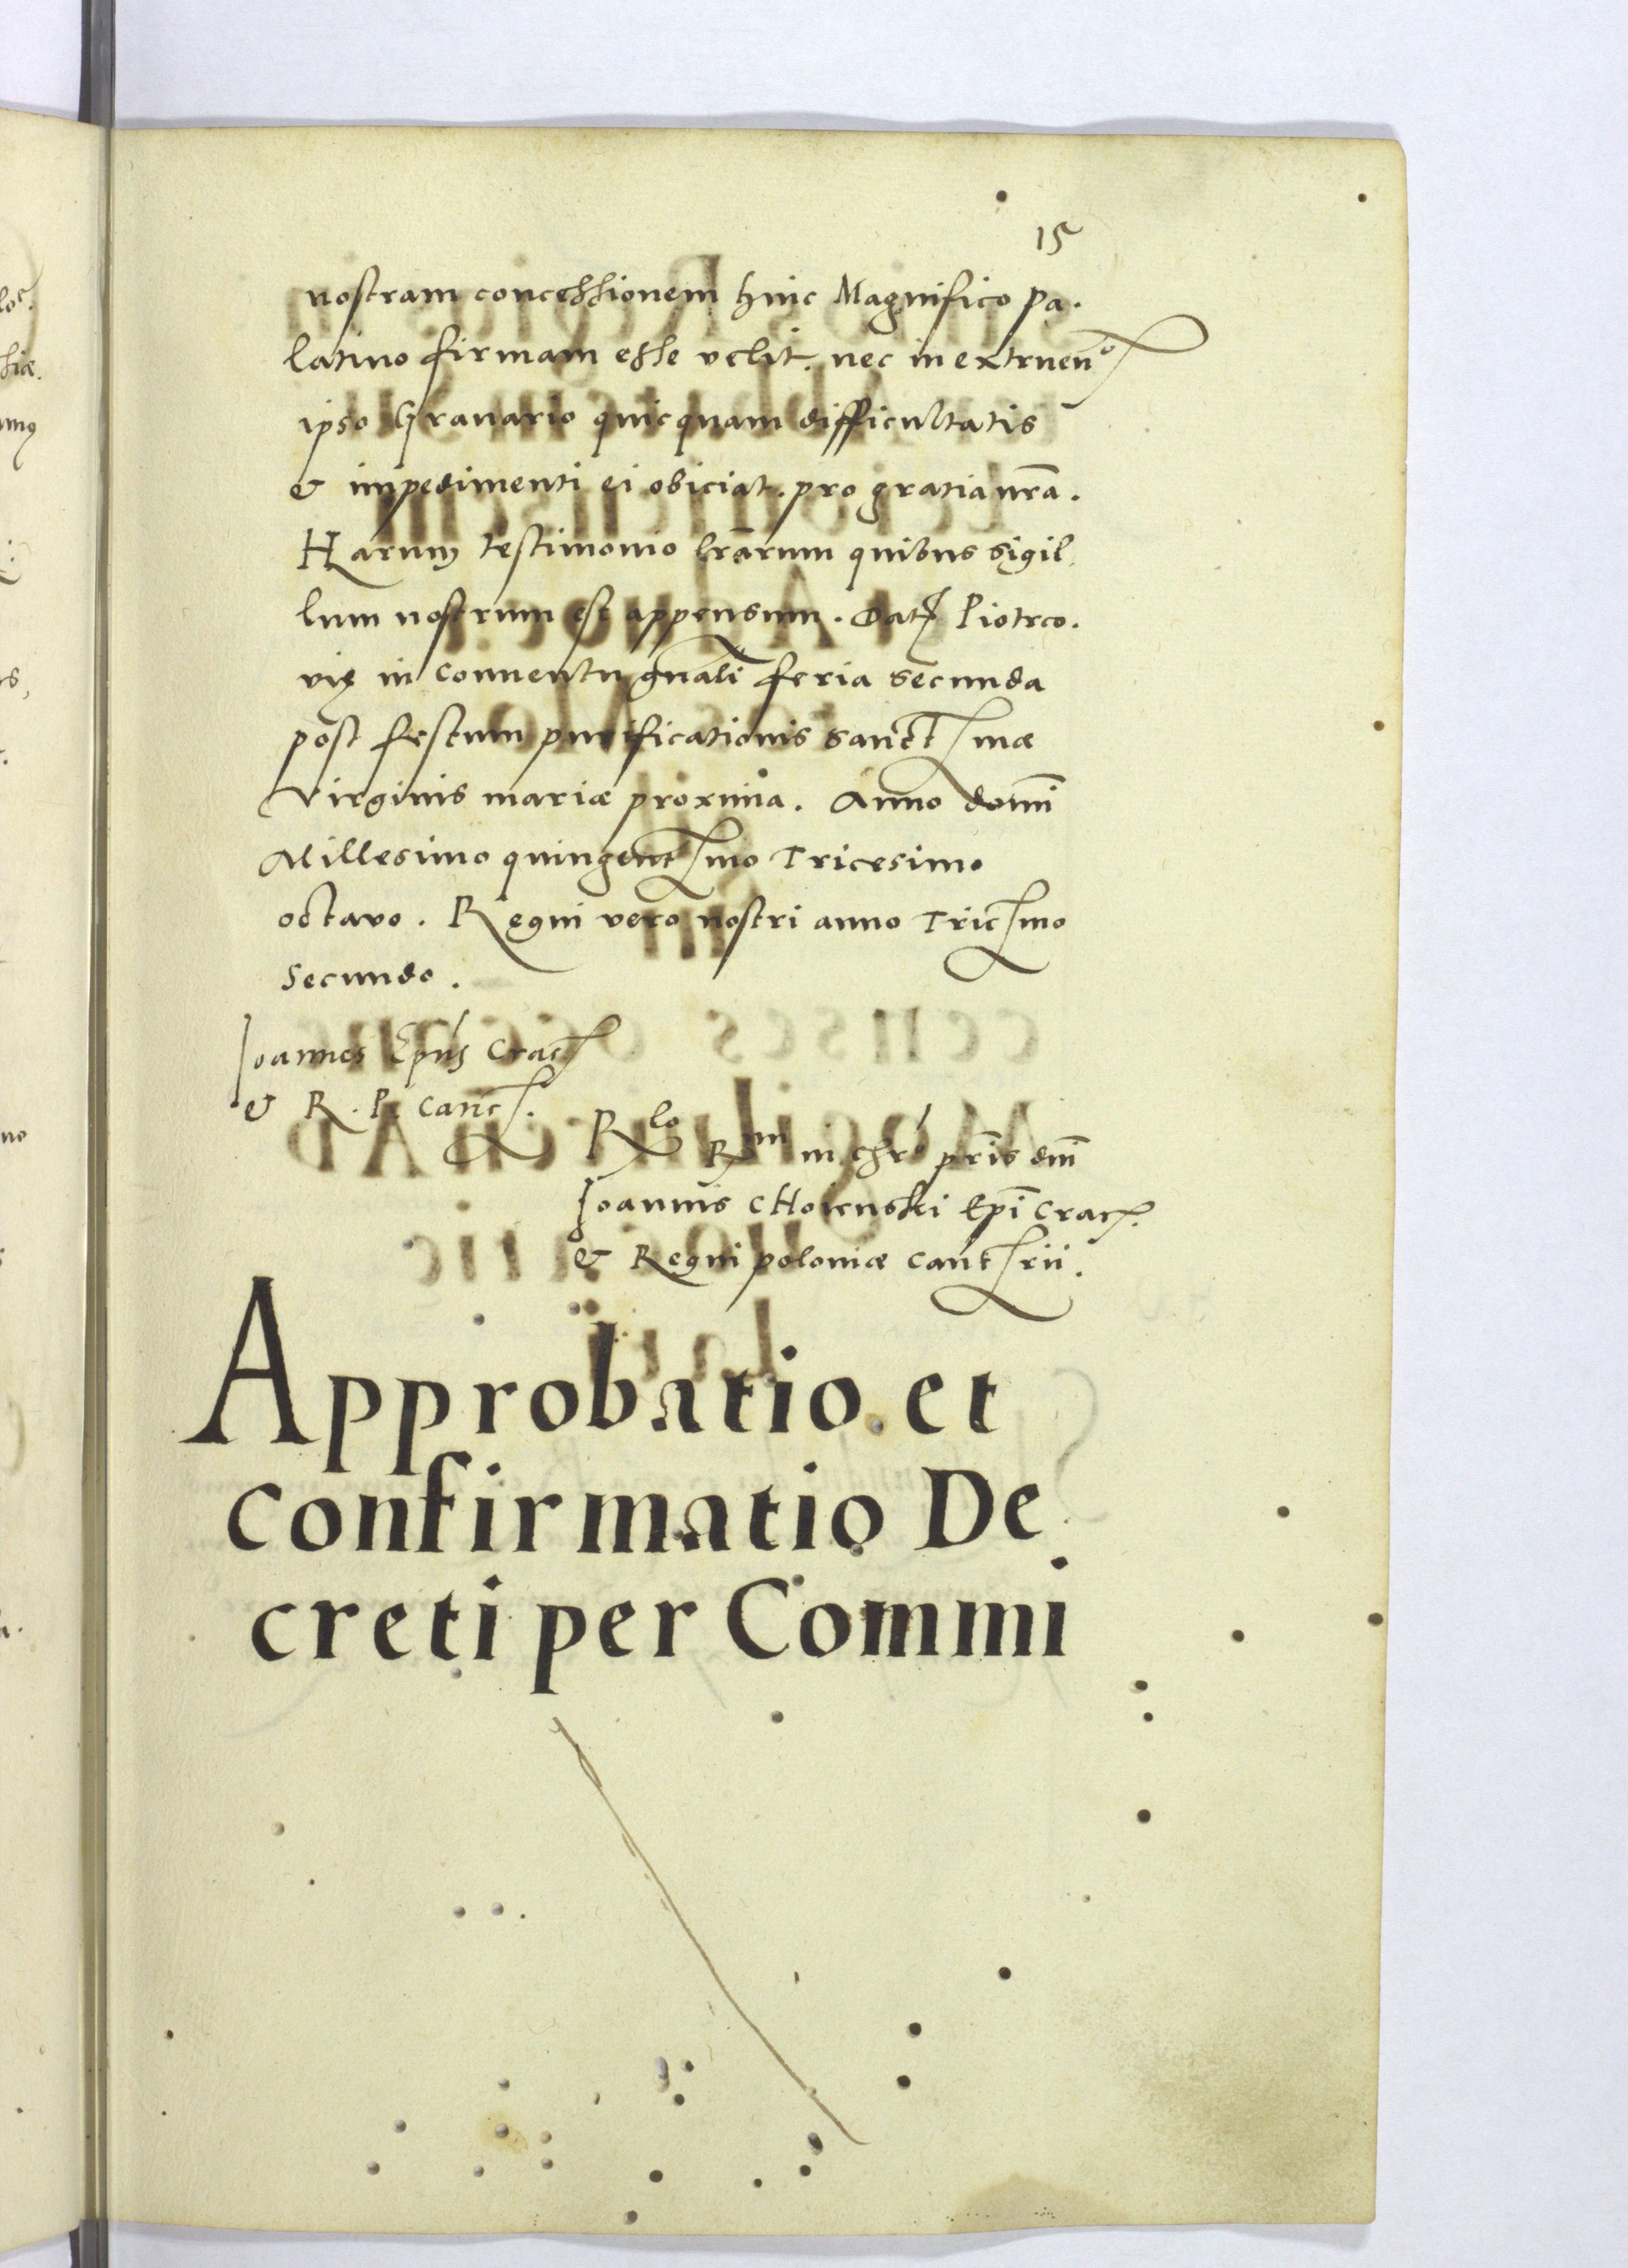 15
nostram concessionem huic Magnifico pa.
latino firmam esse velit. nec in extruen̄º
ipso Granario quicquam difficultatis
& impedimenti ei obiciat. pro gratia nr̄a.
Harum testimonio lr̄arum quibus sigil
lum nostrum est appensum. Dat Piotrco.
vię in conuentu gn̄ali feria secunda
post festum purificationis sanctmæ
Virginis mariæ proxima. Anno domī
Millesimo quingentmo Tricesimo
octavo. Regni vero nostri anno Tricmo
Secundo.
Joannes Ep̄us Crac
& R. P. Canc.
Rlo Rmi in chrº pr̄is dn̄i
Joannis CHoienski Ep̄i Crac.
& Regni poloniæ Canc̄rii.
Approbatio et
confirmatio De
creti per Commi